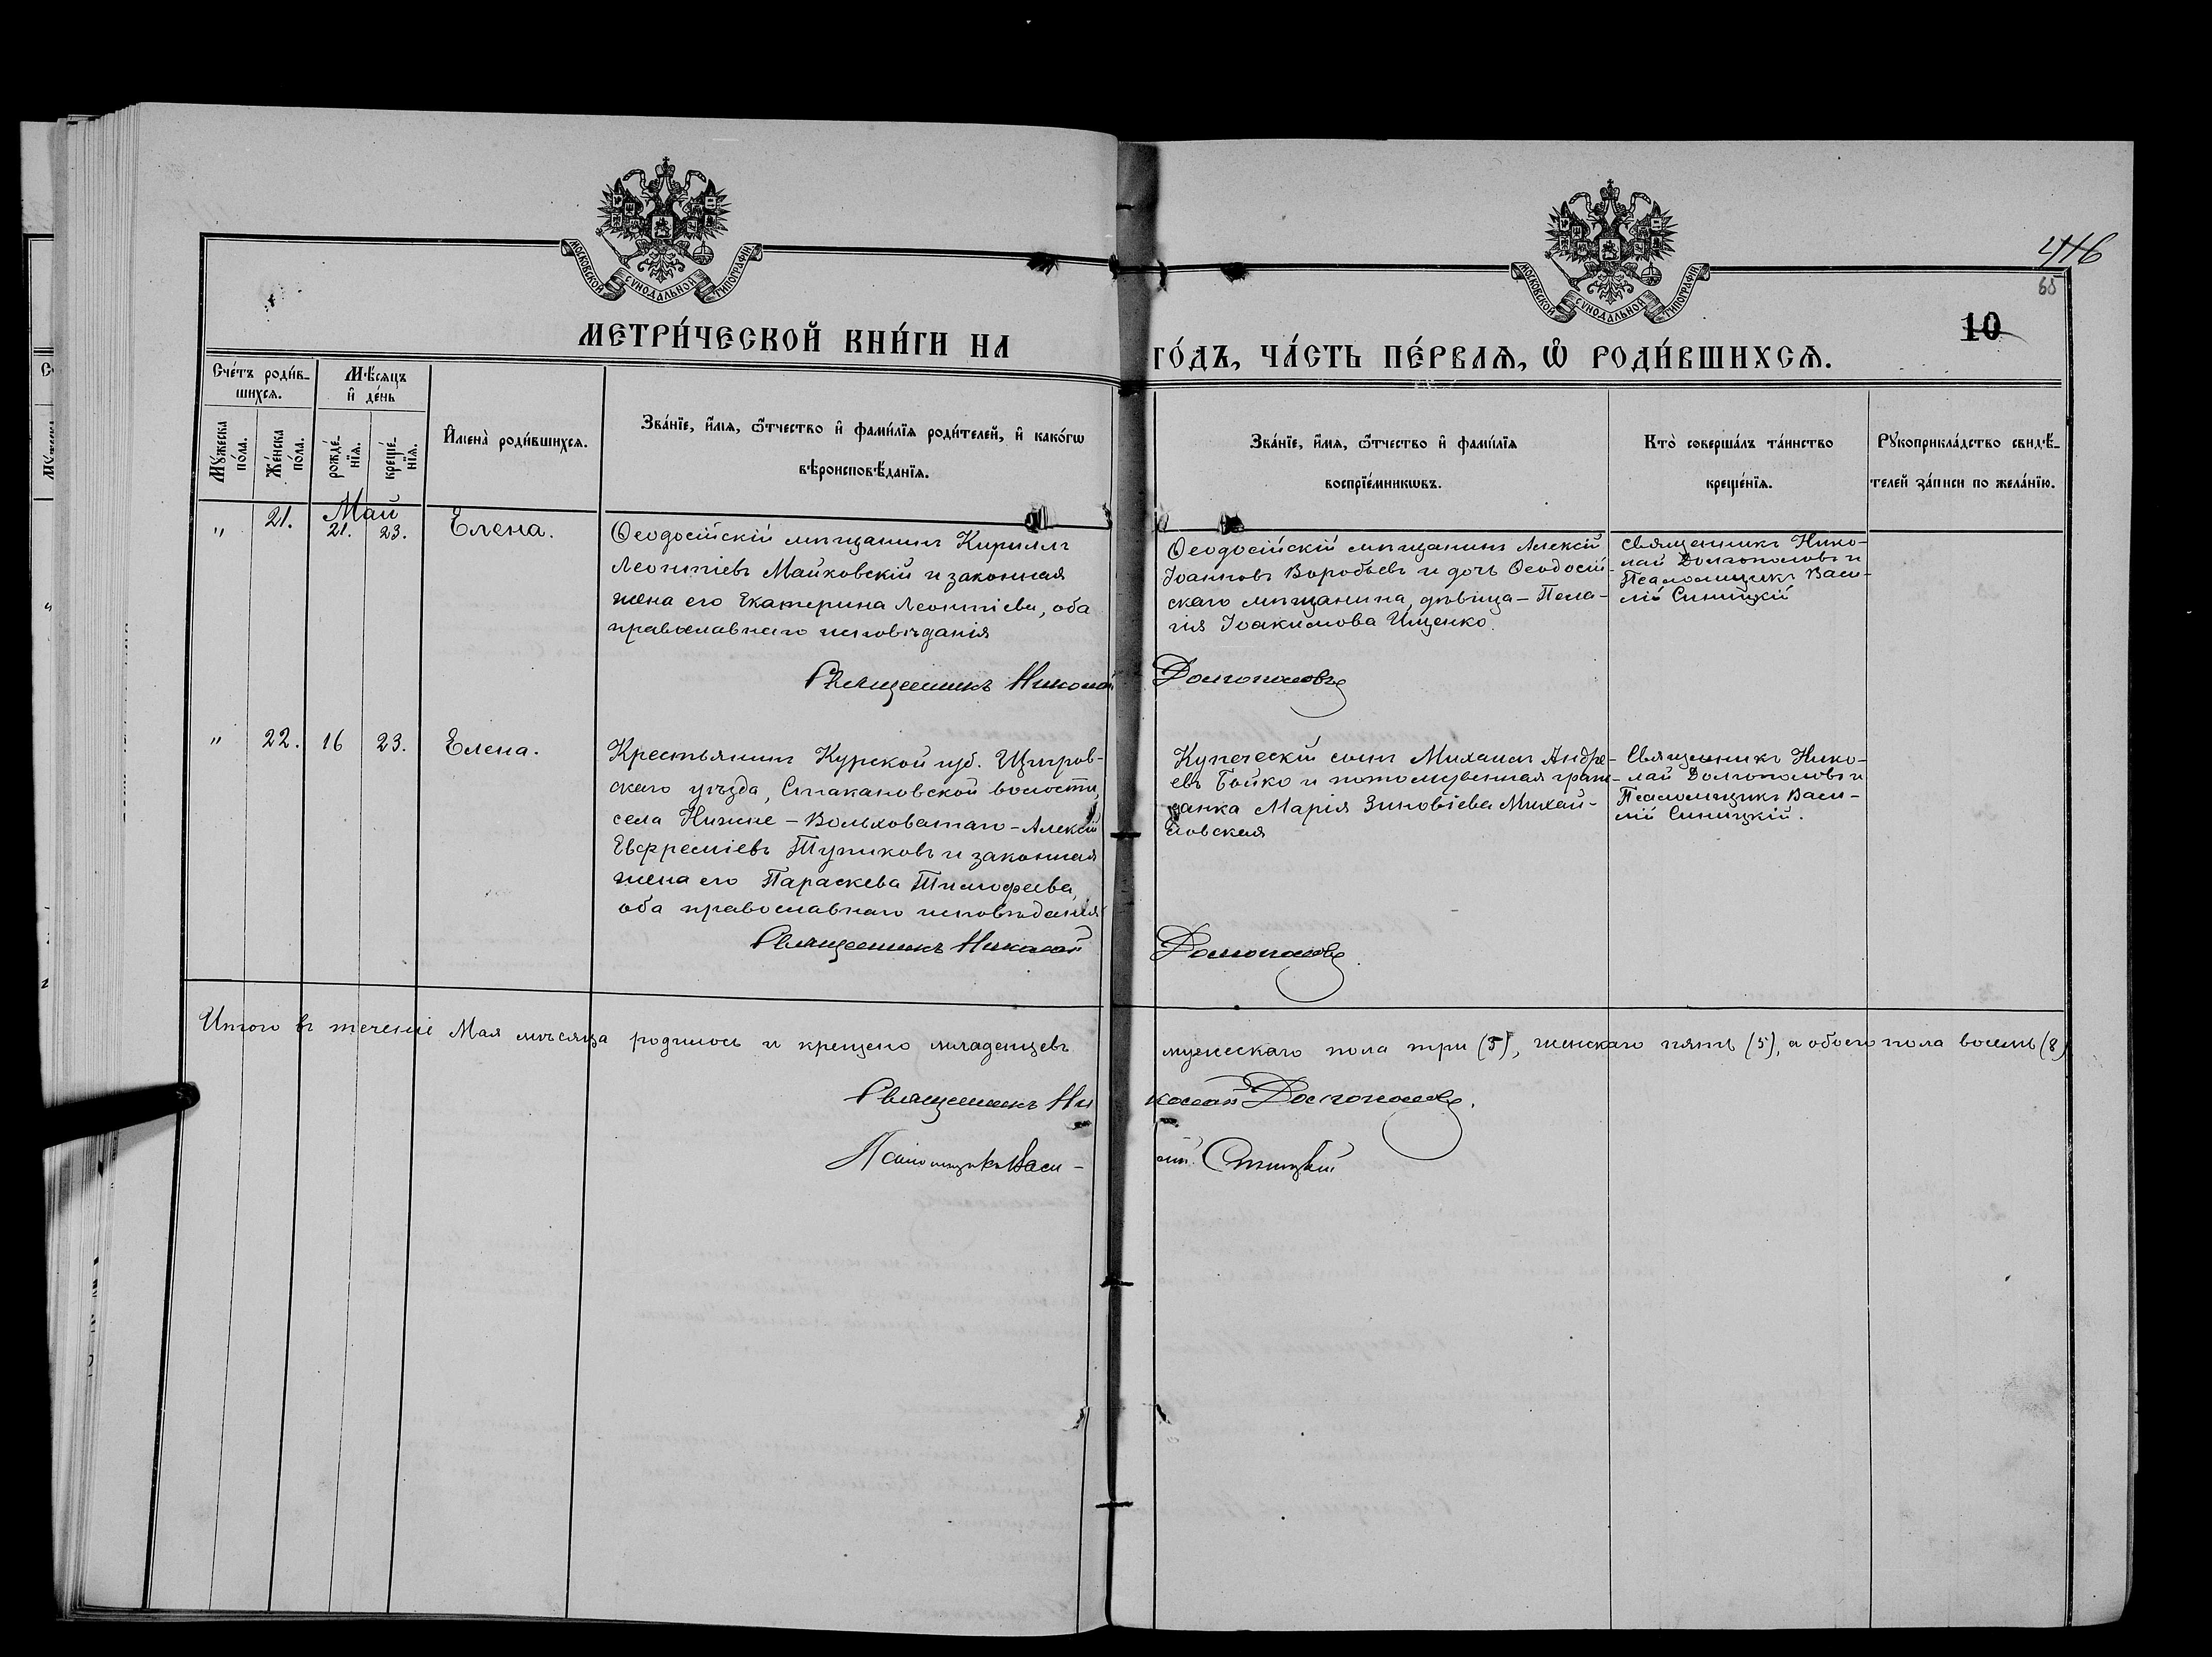 МОСКОВСКОЙ СУНОДАЛЬНОЙ ТИПОГРАФІИ
МОСКОВСКОЙ СУНОДАЛЬНОЙ ТИПОГРАФІИ
416
65
10
МЕТРИ́ЧЕСКОЙ КНИ́ГИ НА
ГО́ДЪ, ЧА́СТЬ ПЕ́РВАѦ, Ѽ РОДИ́ВШИХСѦ.
Сче́тъ роди́в-
шихсѧ.
Мѣ́сѧцъ
и҆ де́нь
Мꙋ́жеска
по́ла.
Же́нска
по́ла.
рожде́-
нїѧ.
креще́-
нїѧ.
И҆мена̀ роди́вшихсѧ.
Зва́нїе, и҆́мѧ, ѻ҆́тчество и҆ фами́лїѧ роди́телей, и҆ како́гѡ
вѣроисповѣ́данїѧ.
Зва́нїе, и҆́мѧ, ѻ҆́тчество и҆ фами́лїѧ
воспрїе́мникѡвъ.
Кто̀ соверша́лъ та́инство
креще́нїѧ.
Рꙋкоприкла́дство свидѣ́-
телей за́писи по жела́нїю.
Май
" 21. 21. 23. Елена.
Ѳеодосійскій мѣщанинъ Кириллъ
Леонтіевъ Майковскій и законная
жена его Екатерина Леонтіева, оба
православнаго исповѣданія
Ѳеодосійскій мѣщанинъ Алексій
Іоанновъ Воробьевъ и дочь Ѳеодосій-
скаго мѣщанина, дѣвица – Пела-
гія Іоакимова Ищенко.
Священникъ Нико-
лай Долгополовъ и
Псаломщикъ Васи-
лій Синицкій
Священникъ Николай Долгополовъ
" 22. 16 23. Елена.
Крестьянинъ Курской губ. Щигров-
скаго уѣзда, Стакановской волости,
села Нижне – Вольховатаго – Алексій
Евфреміевъ Тупиковъ и законная
жена его Параскева Тимофеева,
оба православнаго исповѣданія
Купеческій сынъ Михаилъ Андре-
евъ Бойко и потомственная граж-
данка Марія Зиновіева Михай-
ловская
Священникъ Нико-
лай Долгополовъ и
Псаломщикъ Васи-
лій Синицкій.
Священникъ Николай Долгополовъ
Итого въ теченіе Мая мѣсяца родилось и крещено младенцевъ мужескаго пола три (3), женскаго пять (5), а обоего пола восемь (8)
Священникъ Николай Долгополовъ.
Псаломщикъ Васи-лій Синицкій